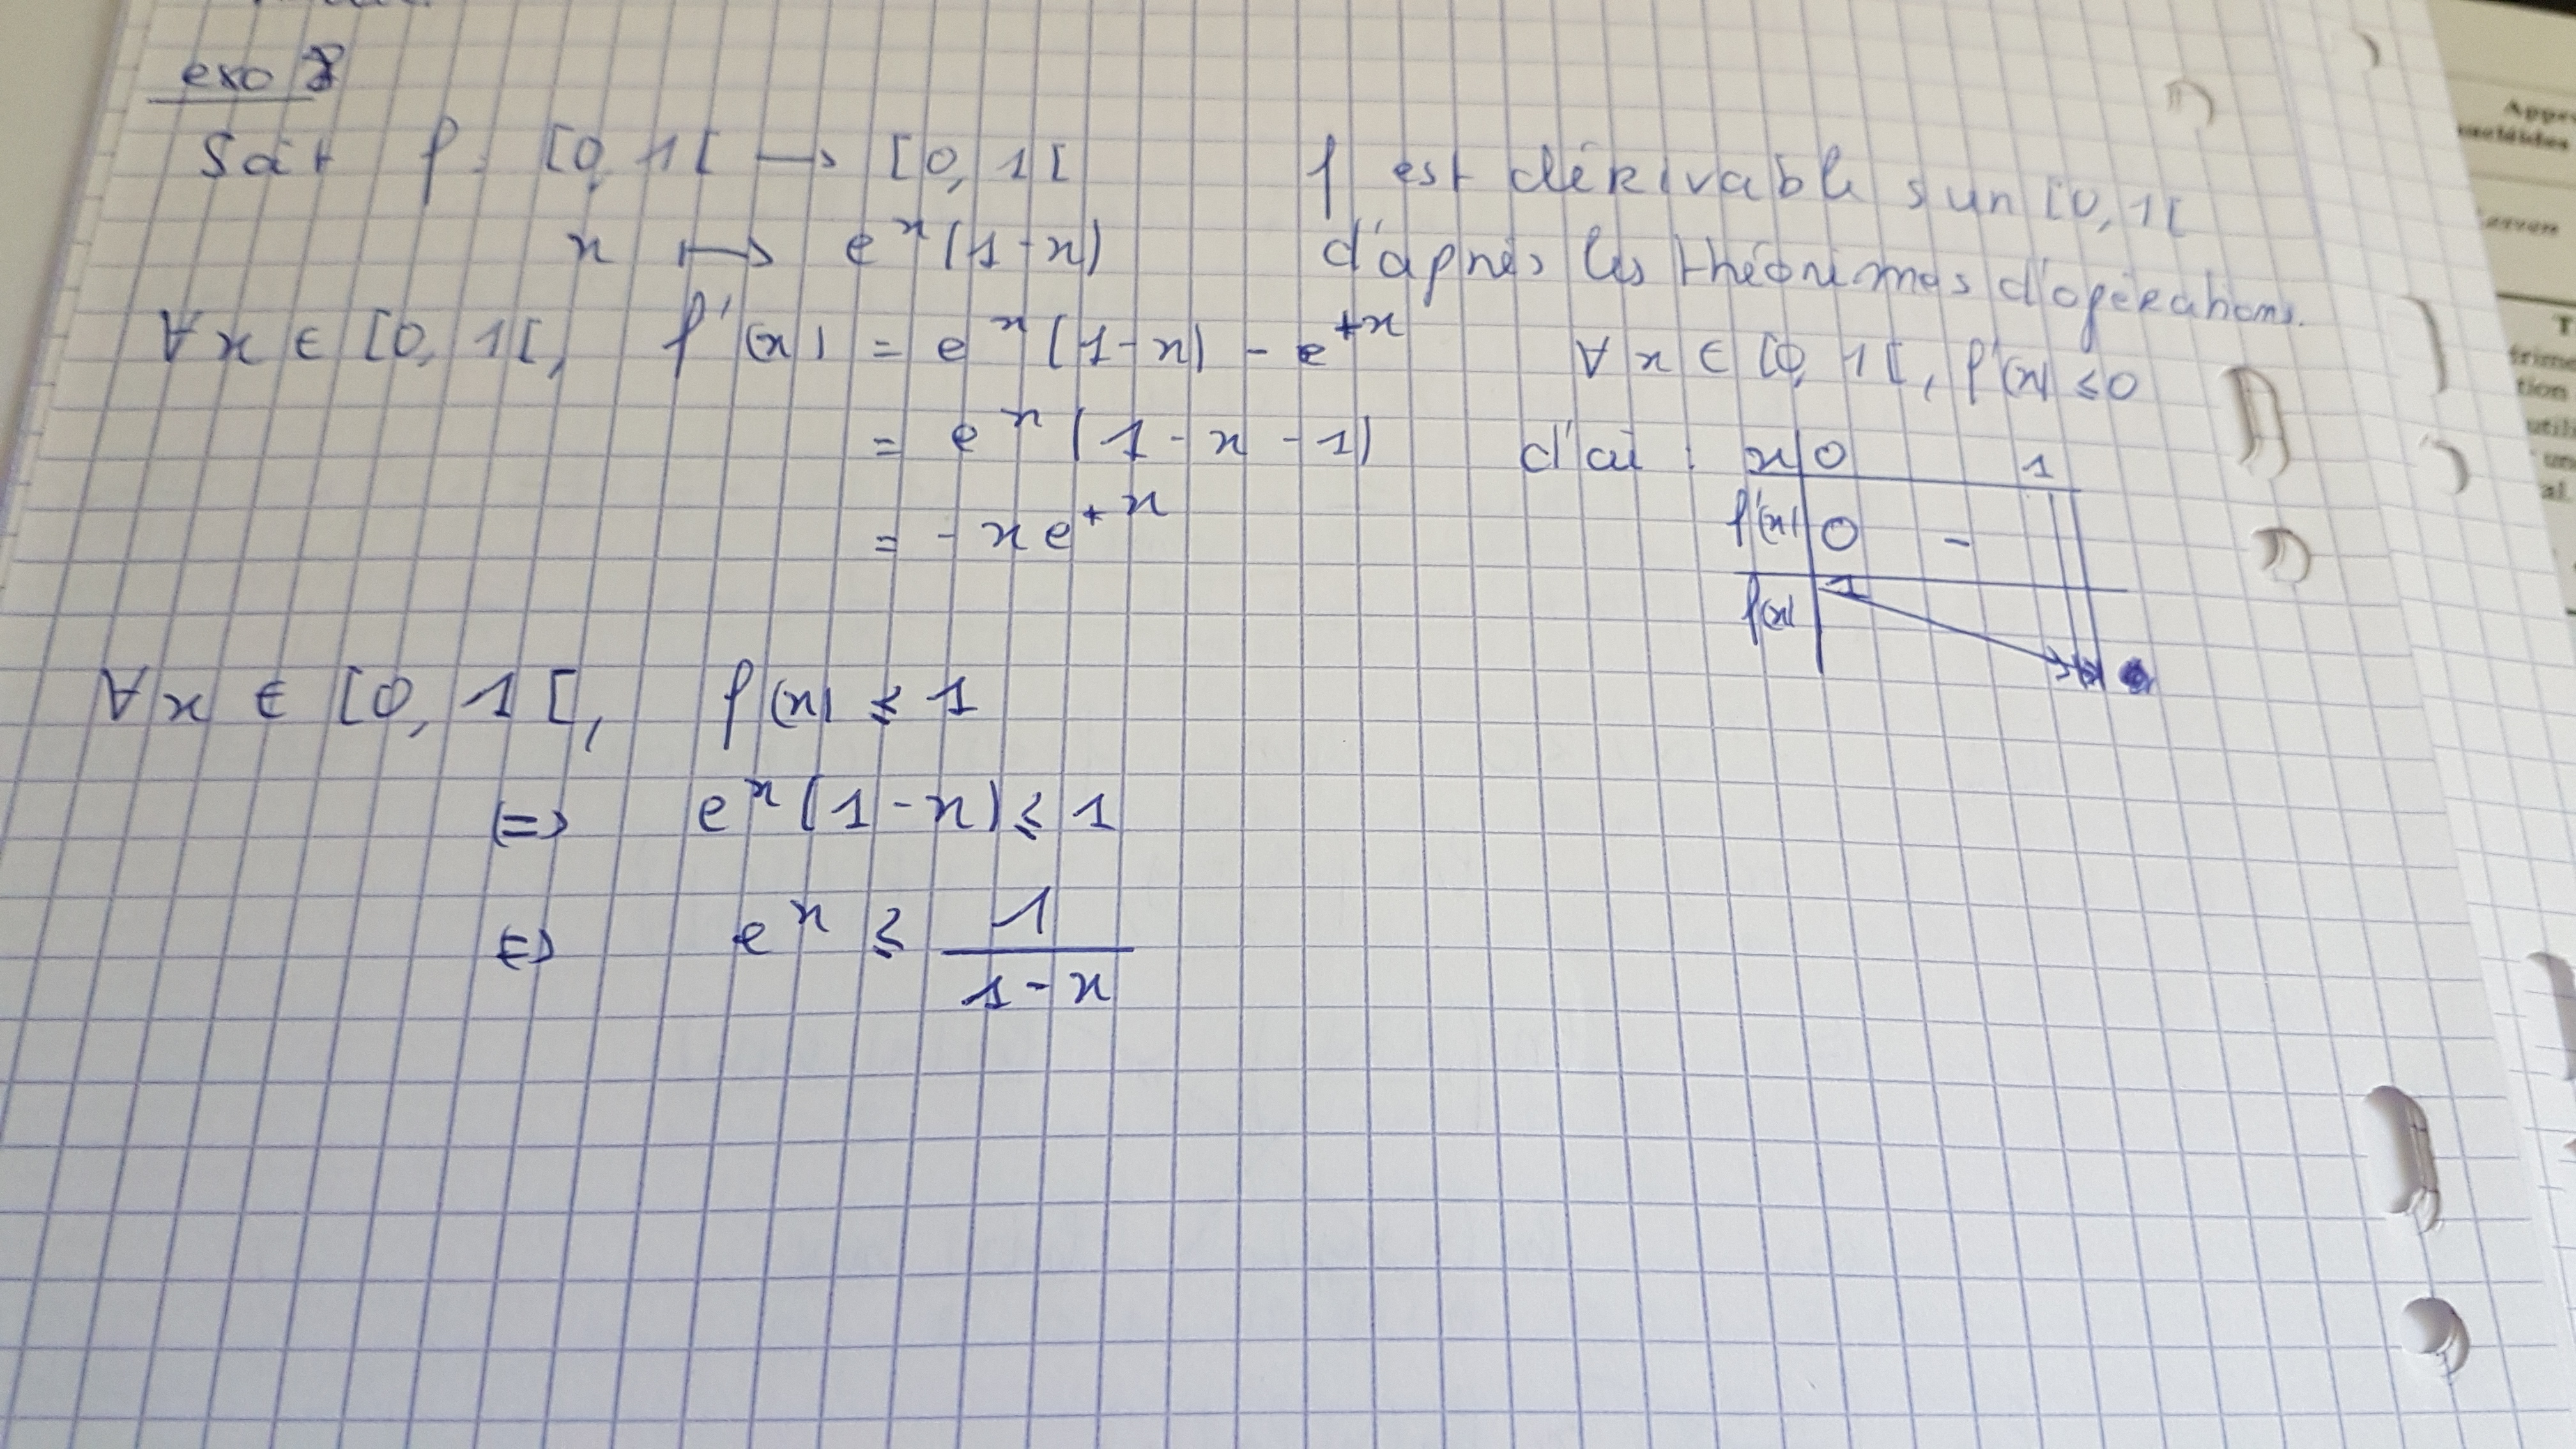 exo 8
Soit f : [0, 1[ → [0, 1[
x ↦ eˣ(1-x)
f est dérivable sur [0, 1[
d'après les théorèmes d'opérations.
∀x ∈ [0, 1[, f'(x) = eˣ(1-x) - e⁺ˣ
= eˣ(1-x-1)
= -xe⁺ˣ
∀x ∈ [0, 1[, f'(x) ≤ 0
d'où : x 0 1
f'(x) 0 -
f(x) 1
∀x ∈ [0, 1[, f(x) ≤ 1
(=> eˣ(1-x) ≤ 1
<=> eˣ ≤ 1/(1-x)
Appr
nucléides
T
tion
utili
un
al.